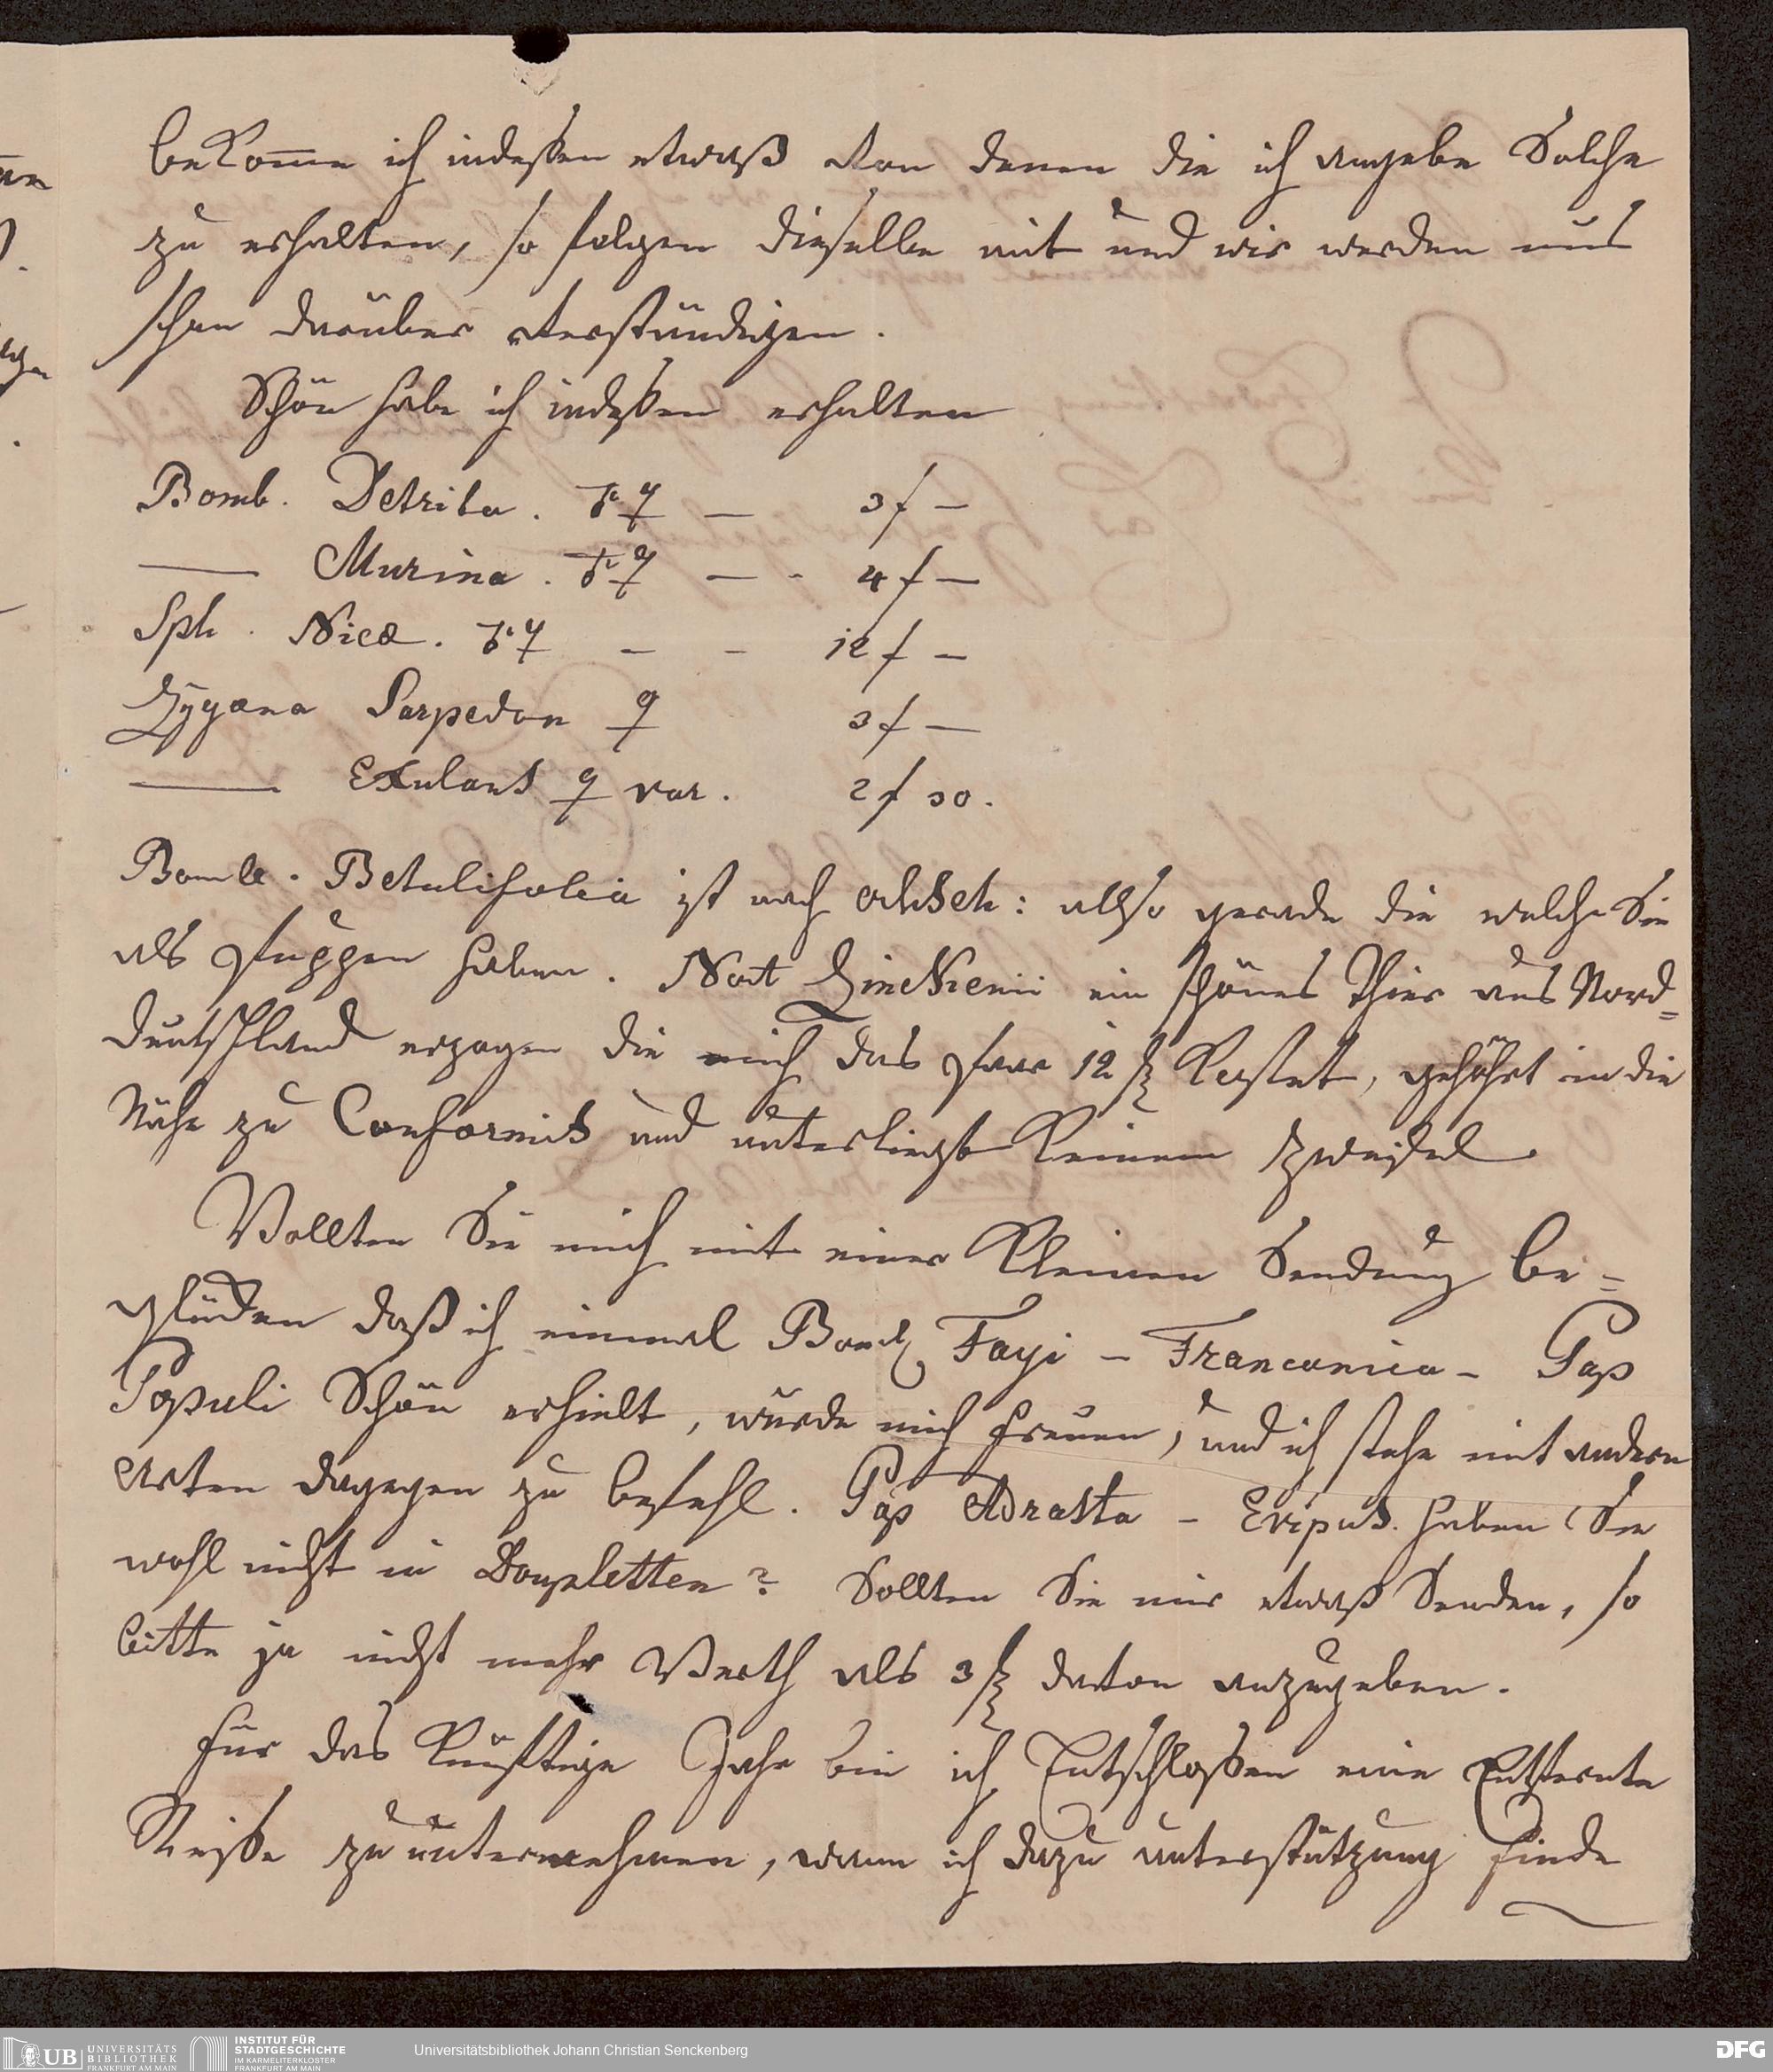 bekom̅e ich indessen etwaß von denen die ich angebe Solche
zu erhalten, so folgen dieselbe mit und wir werden uns
schon darüber verständigen.
Schön habe ich indessen erhalten
Bomb. Detrita. ♂♀ — 3 f —
— Murina. ♂♀ — - 4 f —
Sph. Nicæ. ♂♀ — - 12 f —
Zygæna Sarpedon ♀ 3 f —
— Exulans ♀ var. 2 f 30.
Bomb. Betulifolia ist nach Ochsch: allso gerade die welche Sie
als Puppen haben. Noct Zinckenii ein schönes Thier aus Nord=
deutschland erzogen die mich das Paar 12 f kostet, gehöhrt in die
Nähe zu Conformis und unterliegt keinem zweifel.
Wollten Sie mich mit einer kleinen Sendung be=
glücken daß ich einmal Bomb Fagi — Franconica — Pap
Populi Schön erhielt, würde mich freuen, und ich stehe mit andern
Arten dagegen zu befehl. Pap Adrasta — Eripus. haben Sie
wohl nicht in Doupletten? Sollten Sie mir etwaß Senden, so
bitte ja nicht mehr Werth als 3 f davon anzugeben.
Für das künftige Jahr bin ich Entschlossen eine Entfernte
Reisse zu unternehmen, wenn ich dazu unterstützung finde
UB UNIVERSITÄTS
BIBLIOTHEK
FRANKFURT AM MAIN
INSTITUT FÜR
STADTGESCHICHTE
IM KARMELITERKLOSTER
FRANKFURT AM MAIN
Universitätsbibliothek Johann Christian Senckenberg
DFG